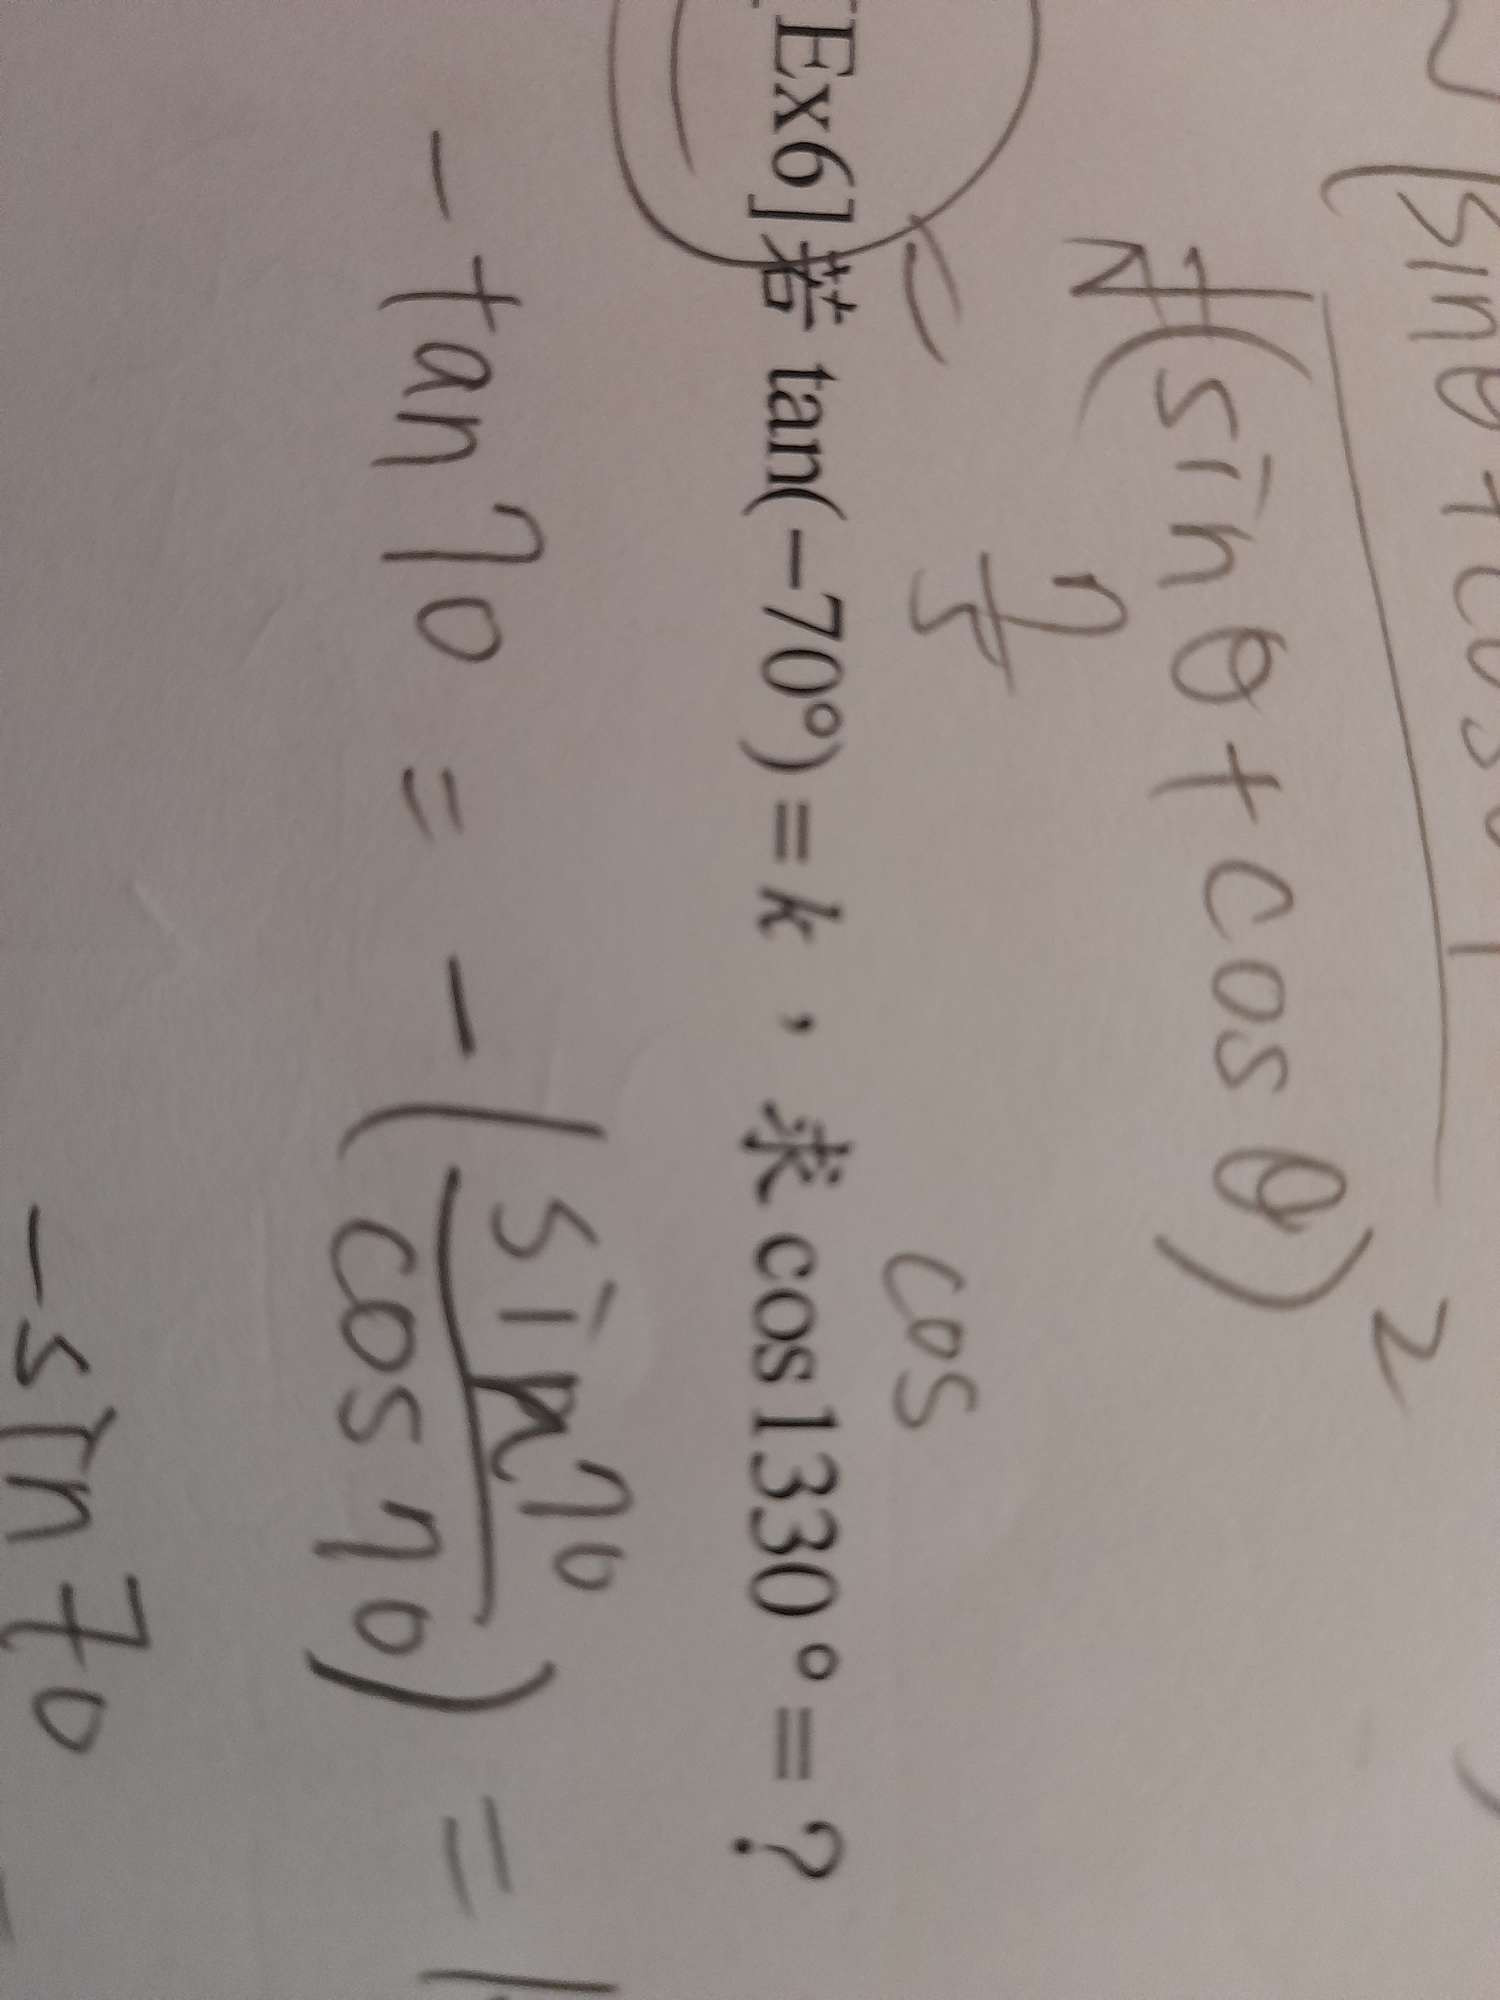 sinθ + cosθ
(sinθ + cosθ)²
cos
[Ex6] 若 tan(−70°) = k ， 求 cos1330° = ?
- tan 70 = - ( sin 70 / cos 70 ) =
- sin 70